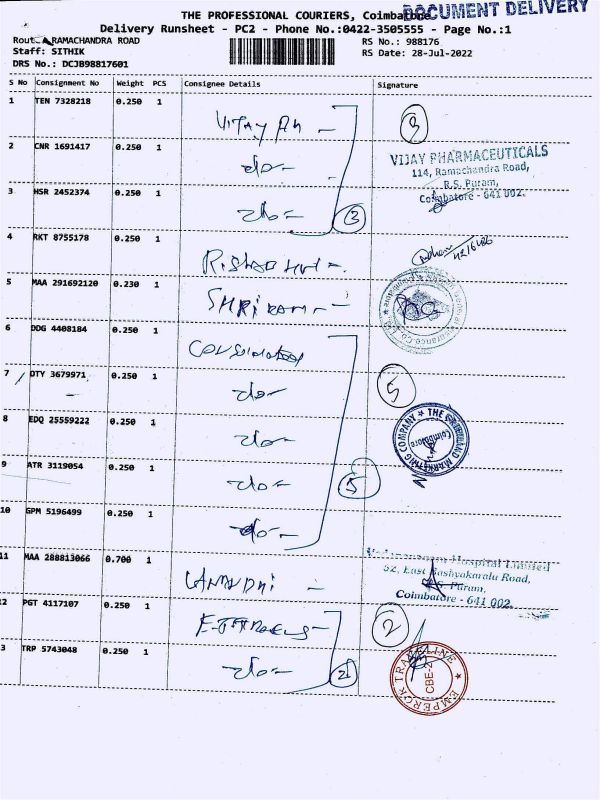 THE PROFESSIONAL COURIERS, Coimbatore
DOCUMENT DELIVERY
Delivery Runsheet - PC2 - Phone No.:0422-3505555 - Page No.:1
Rout RAMACHANDRA ROAD
RS No.: 988176
Staff: SITHIK
RS Date: 28-Jul-2022
DRS No.: DCJB98817601
S No Consignment No Weight PCS Consignee Details Signature
1 TEN 7328218 0.250 1
VIJAY PH -
3
2 CNR 1691417 0.250 1
do
VIJAY PHARMACEUTICALS
114, Ramachandra Road,
R.S. Puram,
Coimbatore - 641 002.
3 HSR 2452374 0.250 1
do
3
4 RKT 8755178 0.250 1
5 MAA 291692120 0.230 1
SHRIRAM -
6 DDG 4408184 0.250 1
7 OTY 3679971 0.250 1
do
5
8 EDQ 25559222 0.250 1
do
MARKETING COMPANY ★ THE
Coimbatore
9 ATR 3119054 0.250 1
do
5
10 GPM 5196499 0.250 1
do
11 MAA 288813066 0.700 1
Hospital Limited
52, East Bashyakaralu Road,
R.S. Puram,
Coimbatore - 641 002.
12 PGT 4117107 0.250 1
2
13 TRP 5743048 0.250 1
do
2
CBE-2